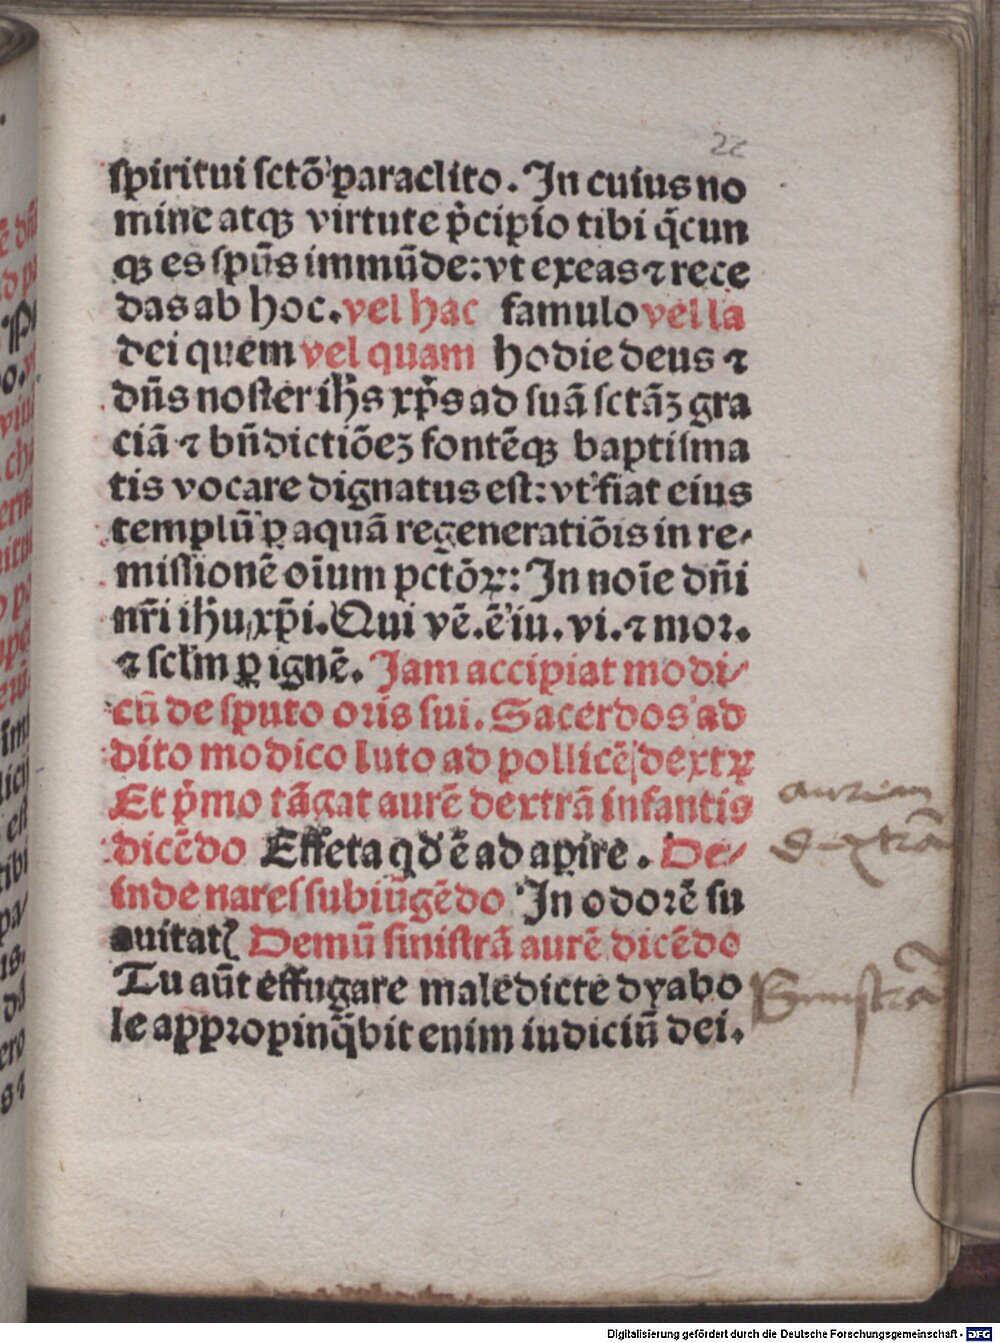 22
spiritui sctō paraclito. In cuius no
mine atqꝫ virtute p̄cipio tibi q̄cun
qꝫ es spūs immūde: vt exeas ⁊ rece
das ab hoc. vel hac famulo vel la
dei quem vel quam hodie deus ⁊
dn̄s noster ihs̄ xp̄s ad suā sctāꝫ gra
ciā ⁊ bn̄dictiōeꝫ fontēqꝫ baptisma
tis vocare dignatus est: vt fiat eius
templū ꝑ aquā regeneratiōis in re⸗
missionē oīum pctōꝝ: In noīe dn̄i
nr̄i ihū xp̄i. Qui vē. ē iu. vi. ⁊ mor.
⁊ sclm̄ ꝑ ignē. Jam accipiat modi⸗
cū de sputo oris sui. Sacerdos ad
dito modico luto ad pollicē dextꝝ
Et p̄mo tāgat aurē dextrā infantis
dicēdo Effeta qd̓ ē adapire. De⸗
inde nares subiūgēdo In odorē su
auitatꝭ Demū sinistrā aurē dicēdo
Tu aūt effugare maledicte dyabo
le appropinq̄bit enim iudiciū dei.
aurem
dextrā
Sinistrā
Digitalisierung gefördert durch die Deutsche Forschungsgemeinschaft - DFG